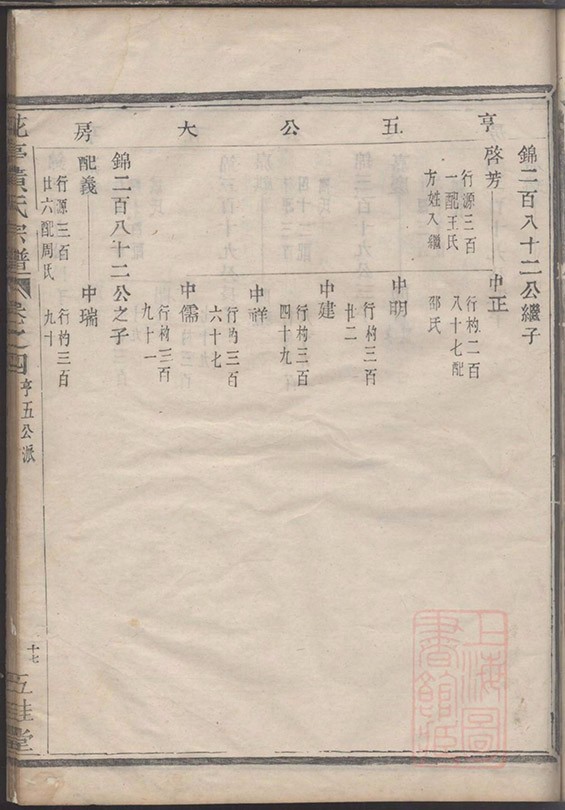 亨五公大房
錦二百八十二公繼子
啓芳
行源三百
一配王氏
方姓入繼
中正
行杓二百
八十七配
邵氏
中明
行杓三百
廿二
中建
行杓三百
四十九
中祥
行杓三百
六十七
中儒
行杓三百
九十一
錦二百八十二公之子
配義
行源三百
廿六配周氏
中瑞
行杓三百
九十
黃氏宗譜
卷之四
亨五公派
十七
五桂堂
上海圖書館藏